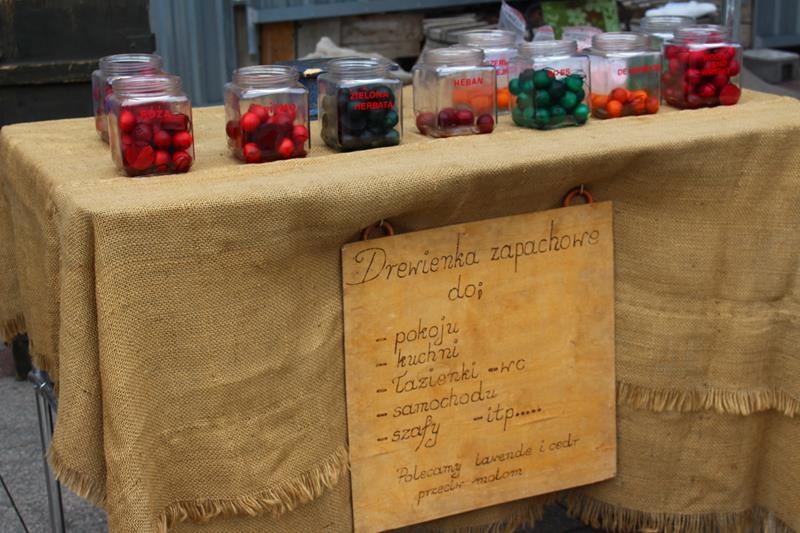 RÓŻA
ZIELONA
HERBATA
HEBAN
Drewienka zapachowe
do;
- pokoju
- kuchni
- Łazienki - wc
- samochodu
- szafy - itp.....
Polecamy Lavende i cedr
przeciw molom